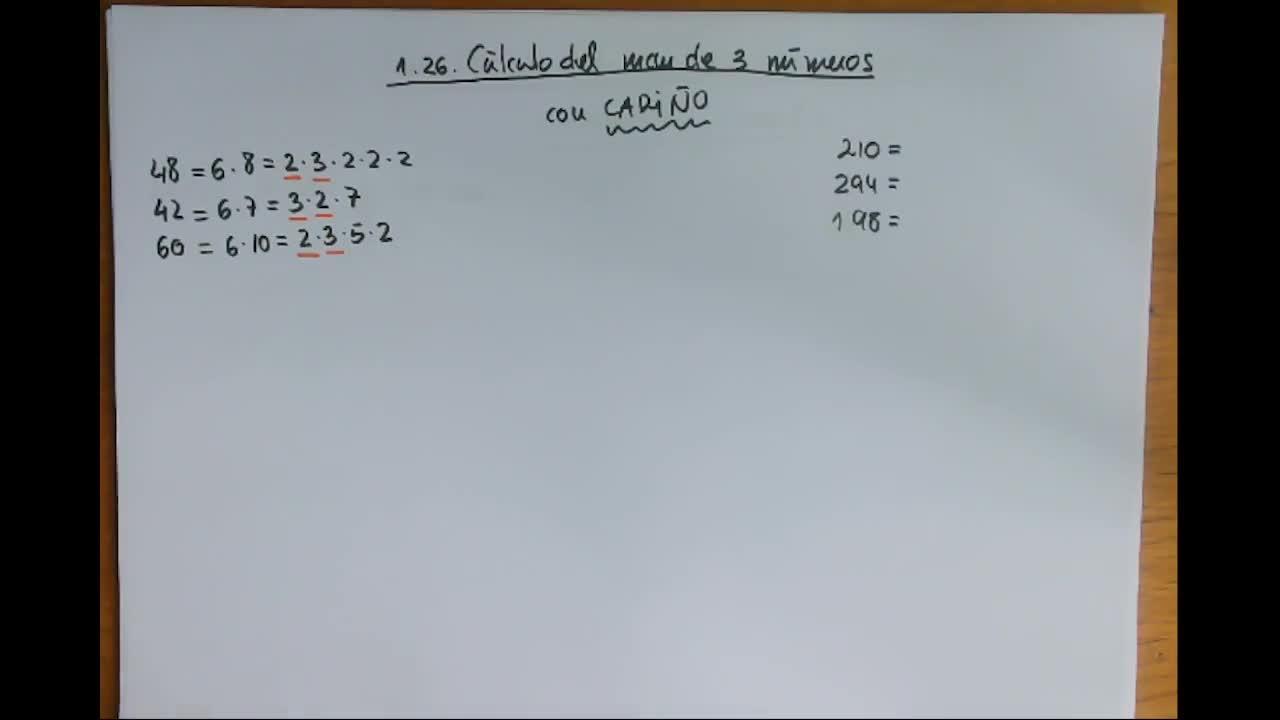 1.26. Cálculo del mcm de 3 números
con CARIÑO
48 = 6·8 = 2·3·2·2·2
42 = 6·7 = 3·2·7
60 = 6·10 = 2·3·5·2
210 =
294 =
198 =